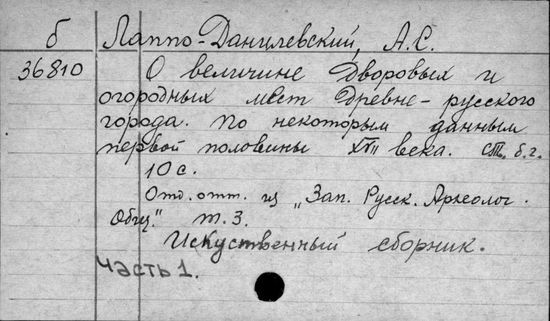 б Лаппо-Данилевский, А.С.
36810 О величине дворовых и
огородных мест древне-русского
города. по некоторым данным
первой половины XVII века. Спб. б.г.
10 с.
Отд. отт. из „Зап. Русск. Археолог.
Общ." т. 3.
Искуственный сборник.
часть 1.